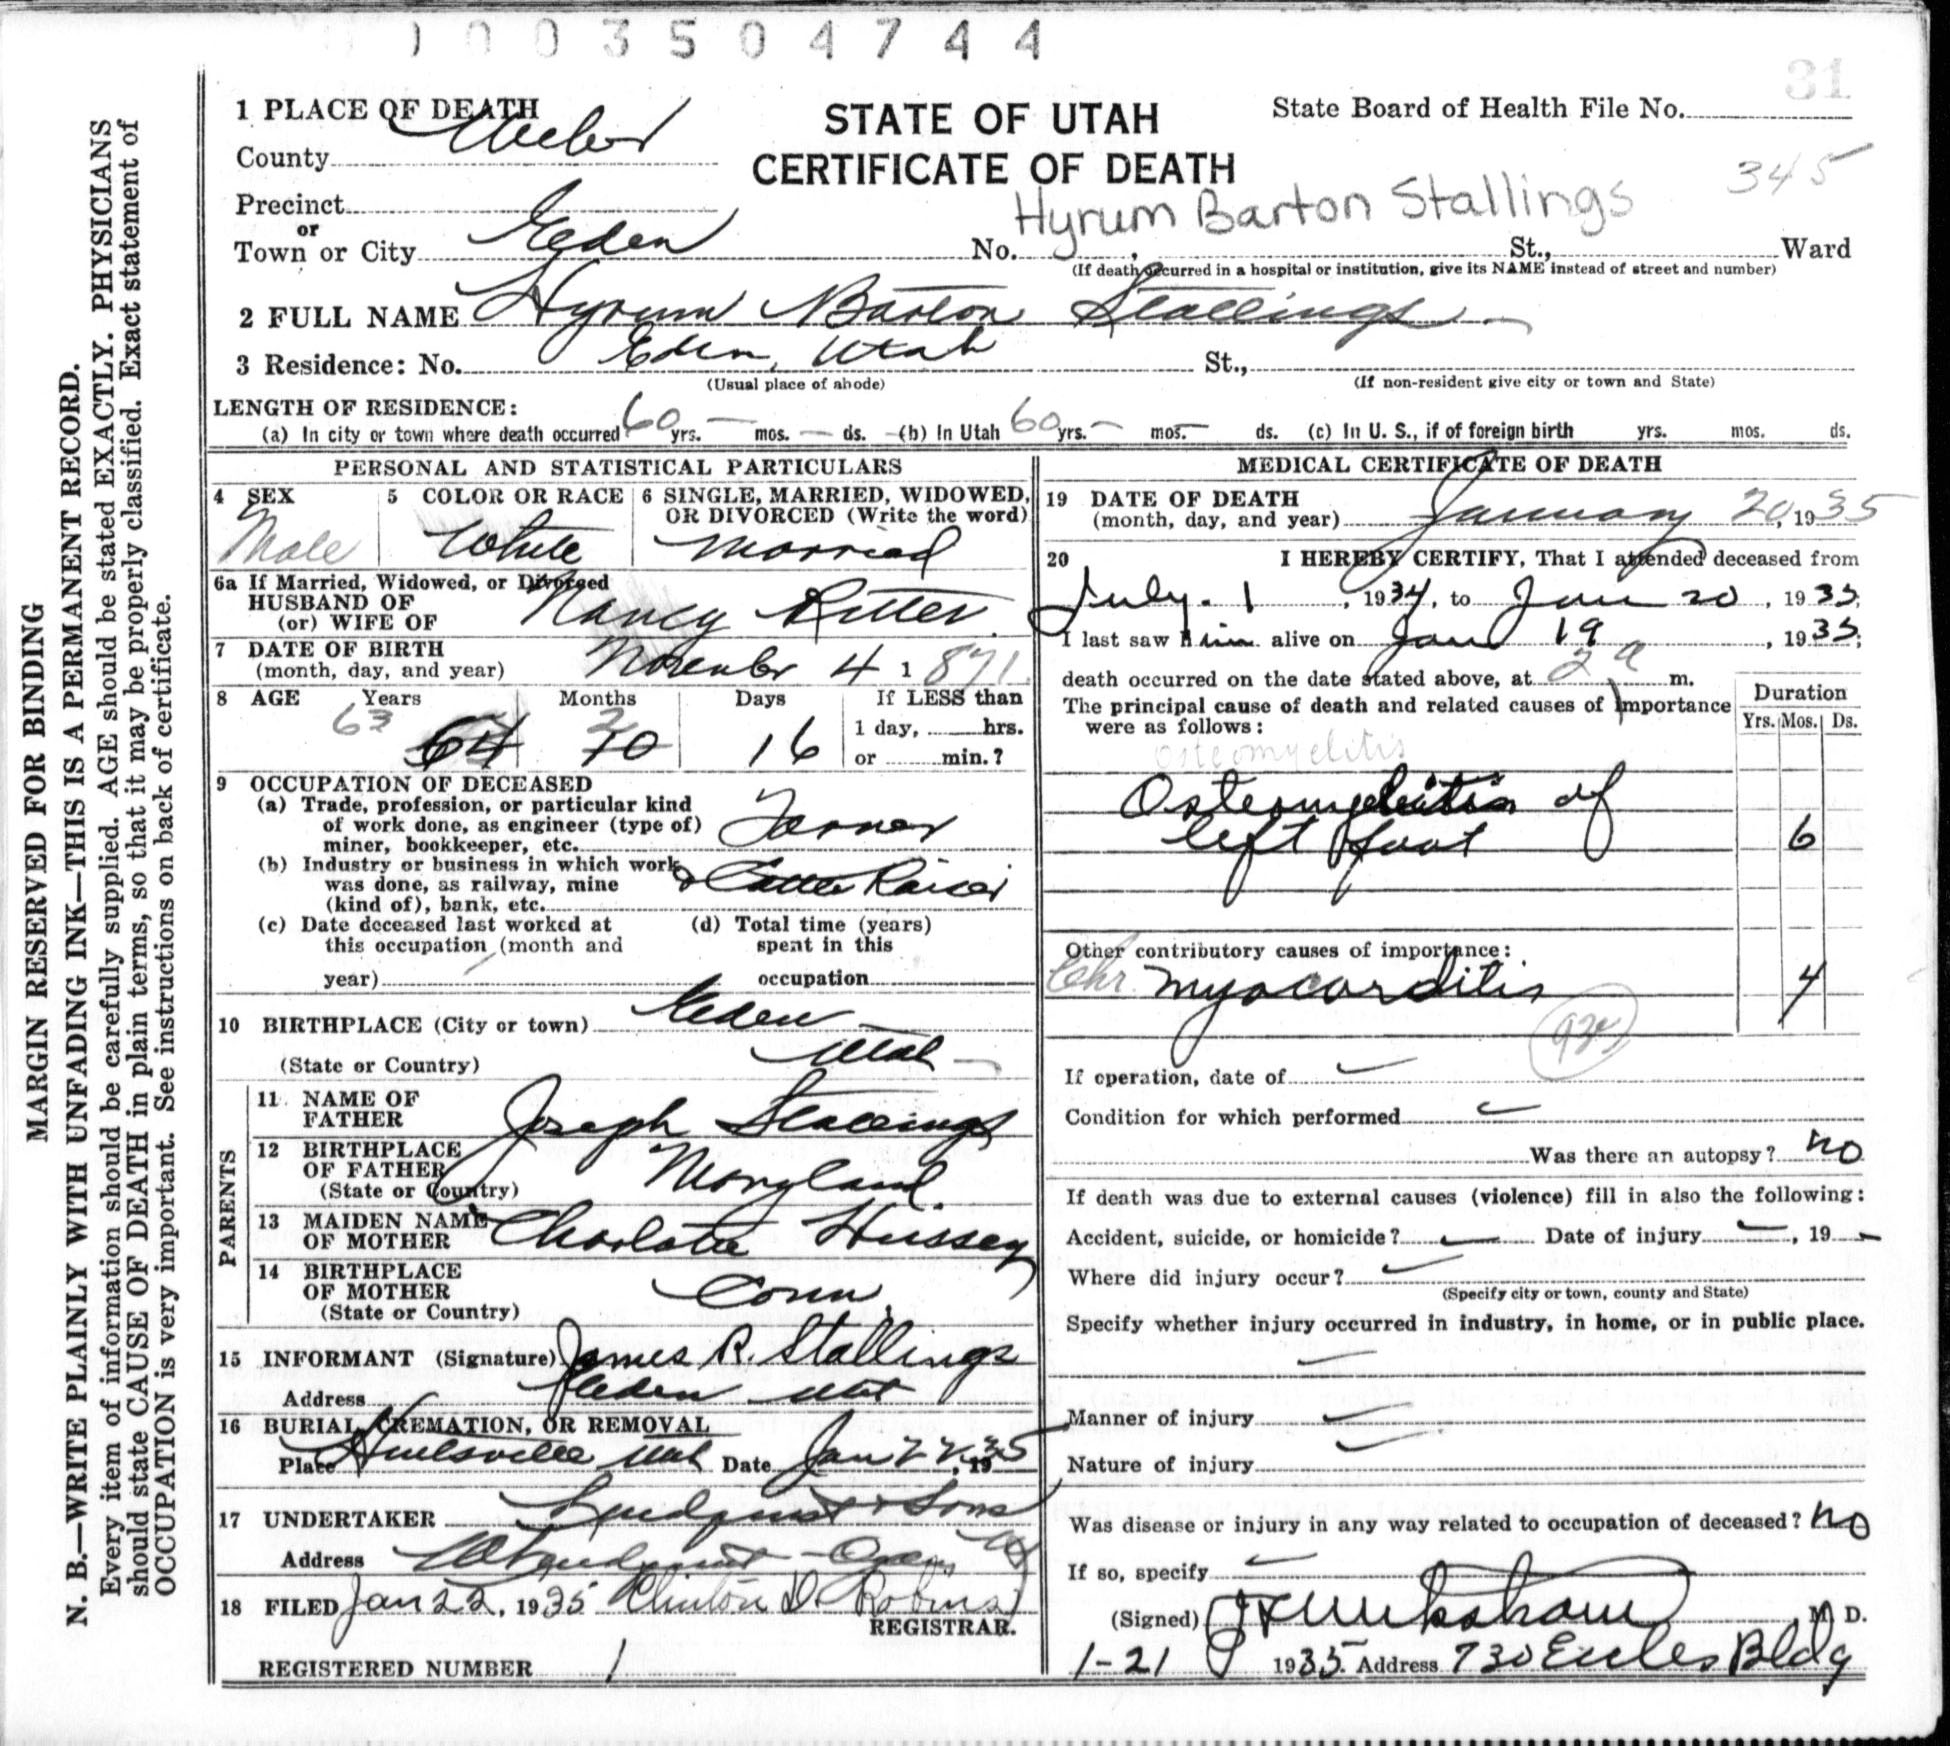 0003504744
31
1 PLACE OF DEATH
County Weber
STATE OF UTAH
CERTIFICATE OF DEATH
State Board of Health File No.
345
Precinct
or
Town or City Eden
Hyrum Barton Stallings
No. St., Ward
(If death occurred in a hospital or institution, give its NAME instead of street and number)
2 FULL NAME Hyrum Barton Stallings
3 Residence: No. Eden, Utah St.,
(Usual place of abode) (If non-resident give city or town and State)
LENGTH OF RESIDENCE:
(a) In city or town where death occurred 60 yrs. — mos. — ds. (b) In Utah 60 yrs. — mos. ds. (c) In U. S., if of foreign birth yrs. mos. ds.
PERSONAL AND STATISTICAL PARTICULARS
4 SEX
Male
5 COLOR OR RACE
White
6 SINGLE, MARRIED, WIDOWED, OR DIVORCED (Write the word)
Married
6a If Married, Widowed, or Divorced
HUSBAND OF
(or) WIFE OF Nancy Ritter
7 DATE OF BIRTH
(month, day, and year) November 4 1871
8 AGE Years Months Days If LESS than
63 2
64 10 16 1 day, hrs.
or min.?
9 OCCUPATION OF DECEASED
(a) Trade, profession, or particular kind
of work done, as engineer (type of)
miner, bookkeeper, etc. Farmer
(b) Industry or business in which work
was done, as railway, mine
(kind of), bank, etc. & Cattle Raiser
(c) Date deceased last worked at
this occupation (month and
year)
(d) Total time (years)
spent in this
occupation
10 BIRTHPLACE (City or town) Eden
(State or Country) Utah
PARENTS
11 NAME OF
FATHER Joseph Stallings
12 BIRTHPLACE
OF FATHER Maryland
(State or Country)
13 MAIDEN NAME
OF MOTHER Charlotte Hussey
14 BIRTHPLACE
OF MOTHER Conn.
(State or Country)
15 INFORMANT (Signature) James R. Stallings
Address Eden Utah
16 BURIAL, CREMATION, OR REMOVAL
Place Huntsville Utah Date Jan 22, 1935
17 UNDERTAKER Lindquist & Sons
Address Ogden
18 FILED Jan 22, 1935 Clinton D. Robins
REGISTRAR.
REGISTERED NUMBER 1
MEDICAL CERTIFICATE OF DEATH
19 DATE OF DEATH
(month, day, and year) January 20, 1935
20 I HEREBY CERTIFY, That I attended deceased from
July. 1, 1934, to Jan 20, 1935,
I last saw him alive on Jan 19, 1935;
death occurred on the date stated above, at 2 a m.
The principal cause of death and related causes of importance
were as follows:
Duration
Yrs. Mos. Ds.
Osteomyelitis
Osteomyelitis of
left foot 6
Other contributory causes of importance:
Chr. Myocarditis 4
If operation, date of
Condition for which performed
Was there an autopsy? no
If death was due to external causes (violence) fill in also the following:
Accident, suicide, or homicide? Date of injury , 19
Where did injury occur?
(Specify city or town, county and State)
Specify whether injury occurred in industry, in home, or in public place.
Manner of injury
Nature of injury
Was disease or injury in any way related to occupation of deceased? no
If so, specify
(Signed) , M. D.
1-21 1935 Address 730 Eccles Bldg
MARGIN RESERVED FOR BINDING
N. B.—WRITE PLAINLY WITH UNFADING INK—THIS IS A PERMANENT RECORD.
Every item of information should be carefully supplied. AGE should be stated EXACTLY. PHYSICIANS
should state CAUSE OF DEATH in plain terms, so that it may be properly classified. Exact statement of
OCCUPATION is very important. See instructions on back of certificate.